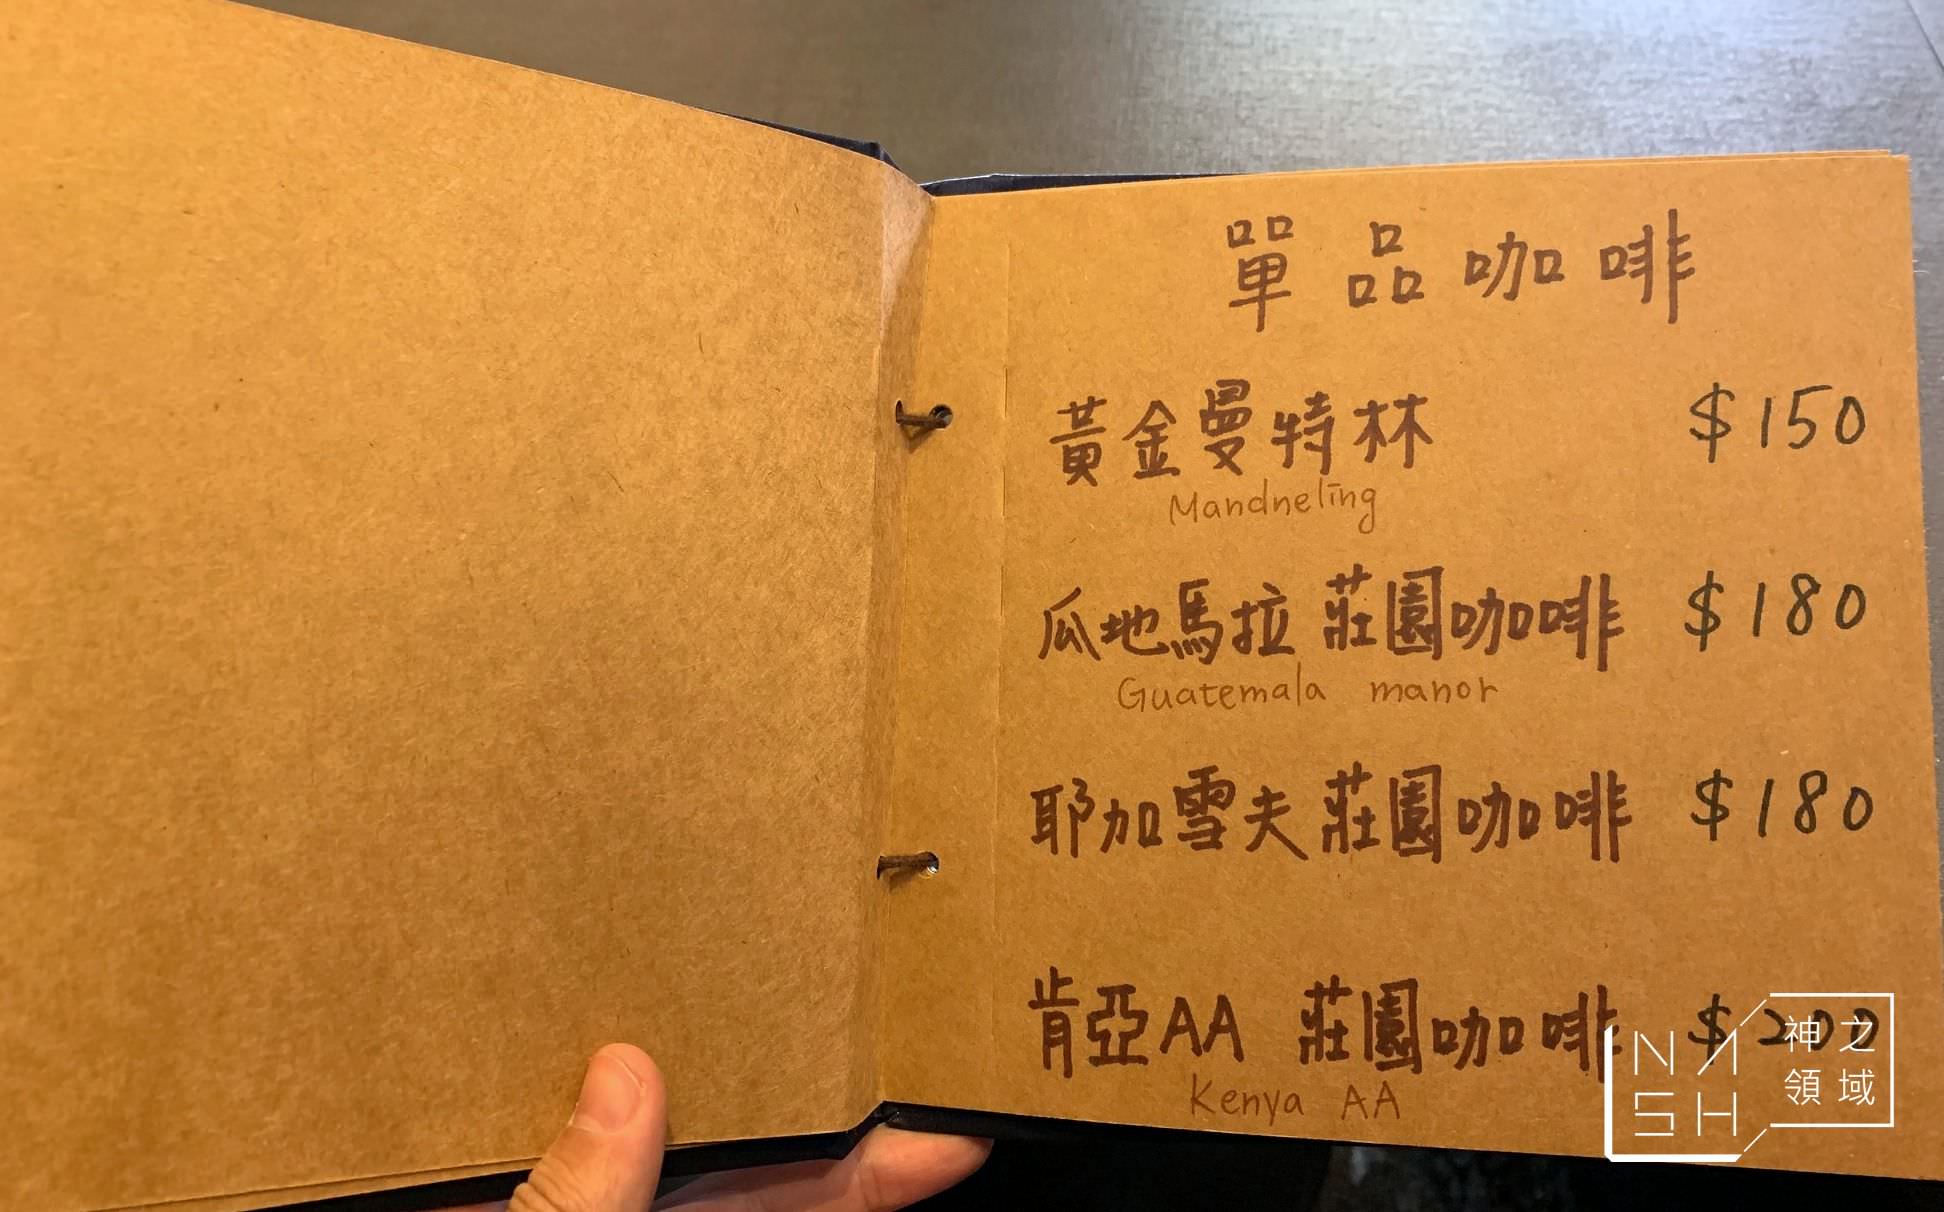 單品咖啡
黃金曼特林 $150
Mandneling
瓜地馬拉 莊園咖啡 $180
Guatemala manor
耶加雪夫莊園咖啡 $180
肯亞AA 莊園咖啡 $200
Kenya AA
NASH
神之
領域